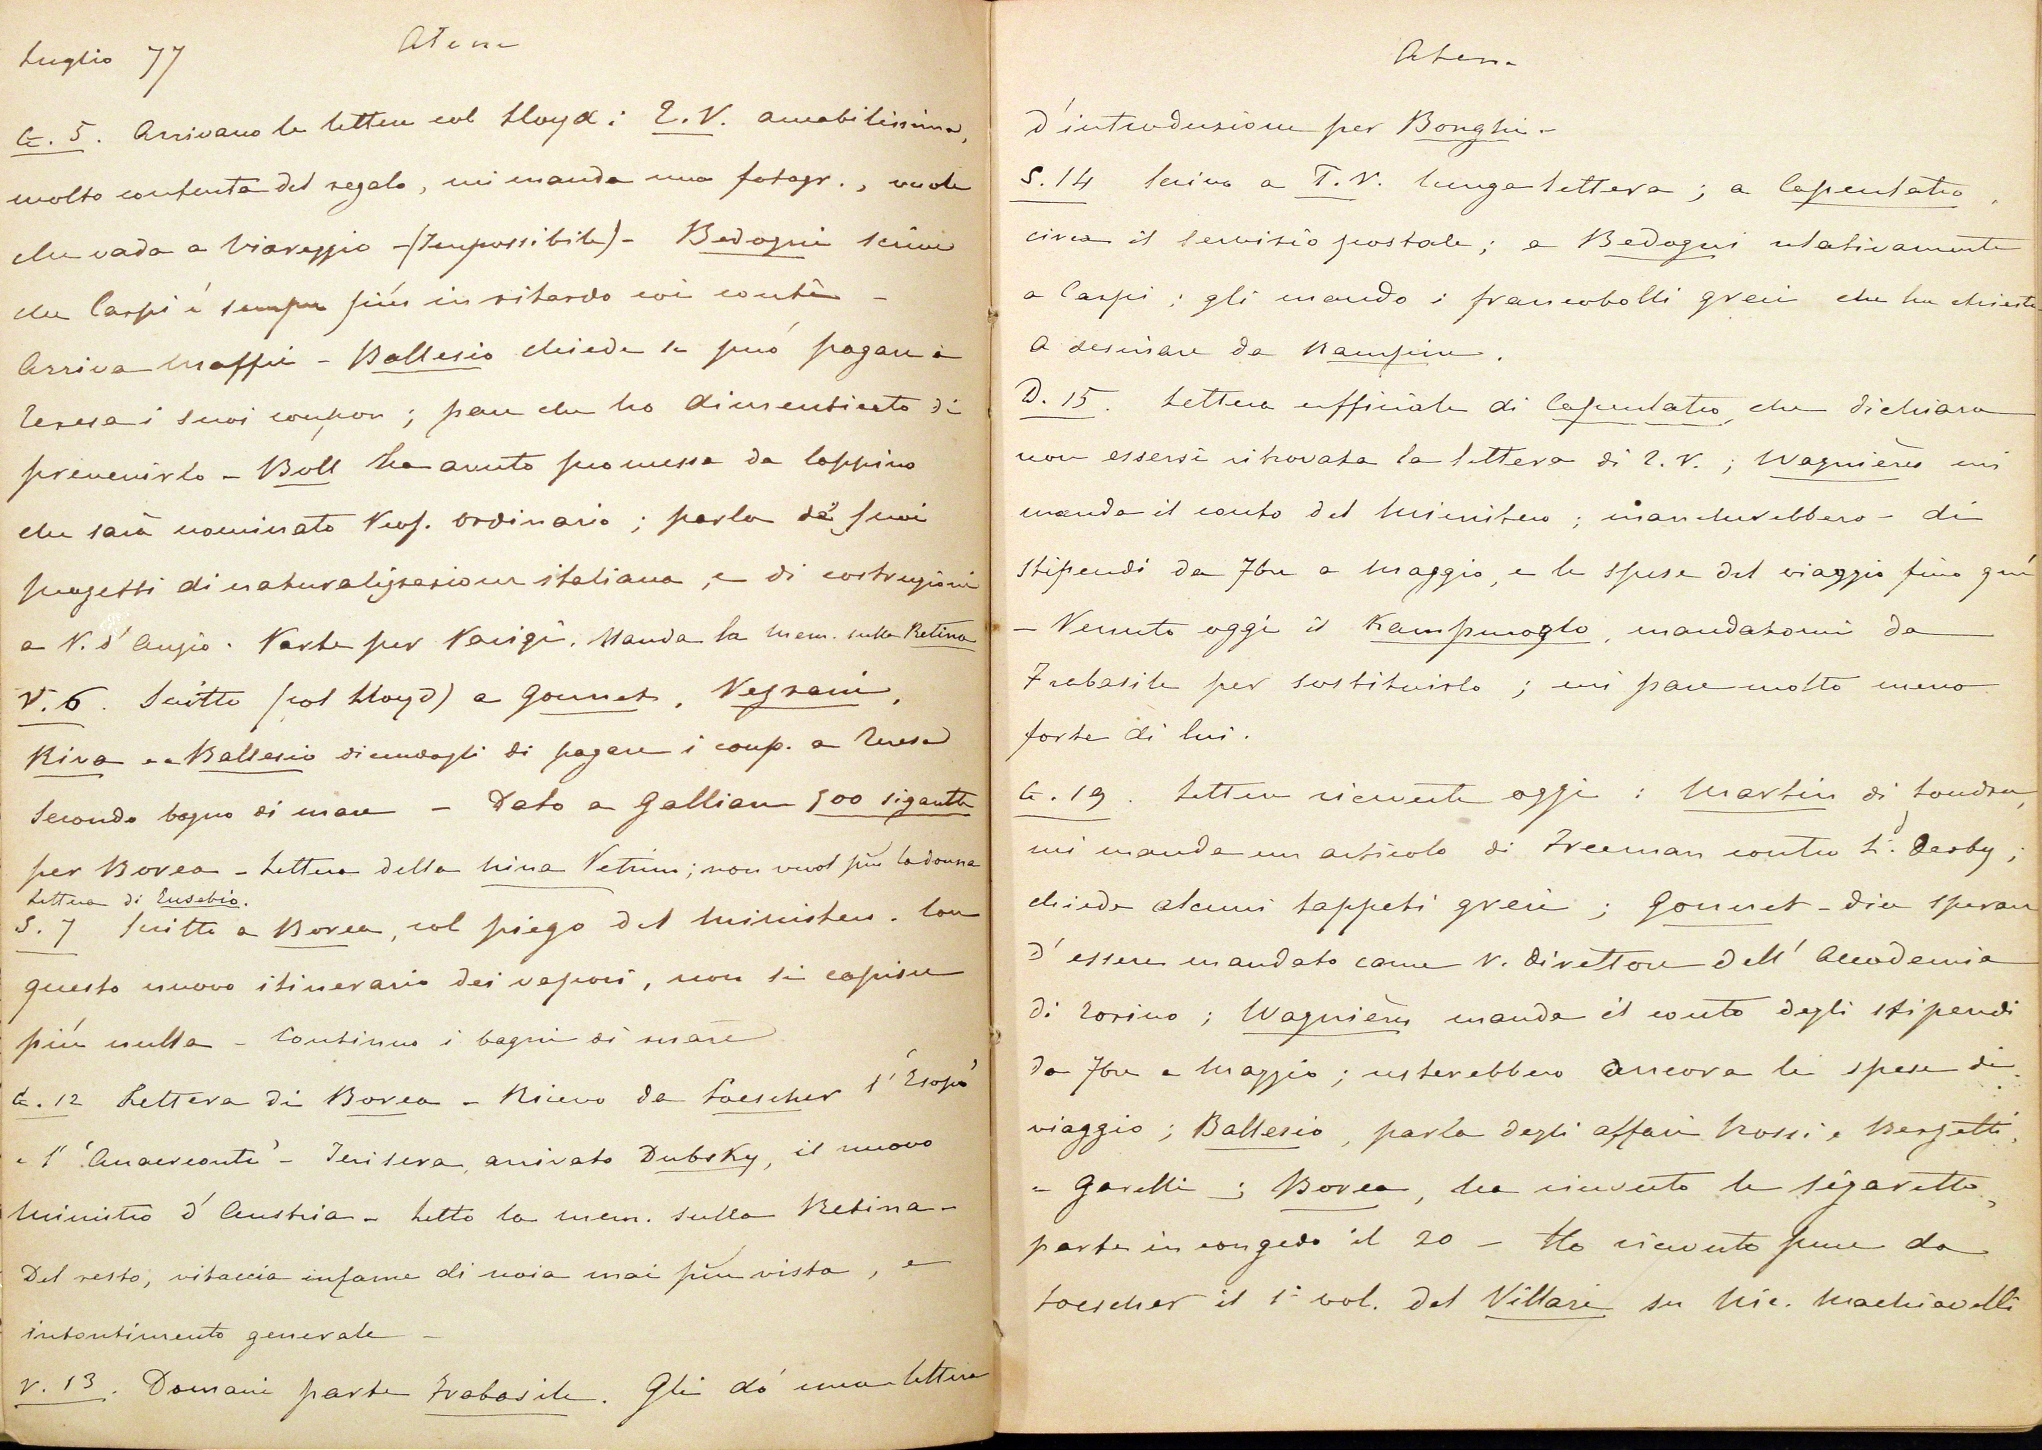 Luglio 77
Atene
G. 5. Arrivano le lettere col Lloyd: T. V. amabilissima,
molto contenta del regalo, mi manda una fotogr., vuole
che vada a Viareggio - (Impossibile) - Bedogni scrive
che Carpi è sempre più in ritardo coi conti -
Arriva Maffei - Ballesio chiede se può pagare a
Teresa i suoi coupon; pare che ho dimenticato di
prevenirlo - Boll ha avuto promessa da Coppino
che sarà nominato Prof. Ordinario; parla de' suoi
progetti di naturalizzazione italiana, e di costruzioni
a P. d'Anzio. Parte per Parigi. Manda la mem. sulla Retina
V. 6. Scritto (col Lloyd) a Gonnet,
Riva e a Ballesio dicendogli di pagare i coup. a Teresa
Secondo bagno di mare - Dato a Gallian 500 sigarette
per Borea - Lettera della Nina Vetrini; non vuol più la donna
Lettera di Eusebio.
S. 7 Scritto a Borea, col piego del Ministero. Con
questo nuovo itinerario dei vapori, non si capisce
più nulla - Continuo i bagni di mare
G. 12 Lettera di Borea - Ricevo da Loescher l'"Esopo"
e l'"Anacreonte" - Ieri sera, arrivato Dubsky, il nuovo
Ministro d'Austria - Letto la mem. sulla Retina -
Del resto, vitaccia infame di noia mai più vista, e
intontimento generale -
V. 13. Domani parte Trabasile. Gli dò una lettera
Atene
d'introduzione per Bonghi -
S. 14 Scrivo a T. V. lunga lettera; a Capenlatro,
circa il servizio postale; a Bedogni relativamente
a Carpi; gli mando i francobolli greci che ha chiesto
A desinare da Rampini.
D. 15. Lettera ufficiale di Capenlatro, che dichiara
non essersi ritrovata la lettera di T. V.; Wagnières mi
manda il conto del Ministero; mancherebbero - di
stipendi da 7bre a Maggio, e le spese del viaggio fino quì
- Venuto oggi il mandatomi da
Trabasile per sostituirlo; mi pare molto meno
forte di lui.
G. 19. Lettere ricevute oggi: Martin di Londra,
mi manda un articolo di Freeman contro Ld. Derby;
chiede alcuni tappeti greci; Gonnet - dice sperare
d'essere mandato come V. Direttore dell'Accademia
di Torino; Wagnières manda il conto degli stipendi
da 7bre a Maggio; resterebbero ancora le spese di
viaggio; Ballesio, parla degli affari Rossi e Berzetti,
e Garelli; Borea, ha ricevuto le sigarette,
parte in congedo il 20 - Ho ricevuto pure da
Loescher il 1° vol. del Villari su Nic. Machiavelli